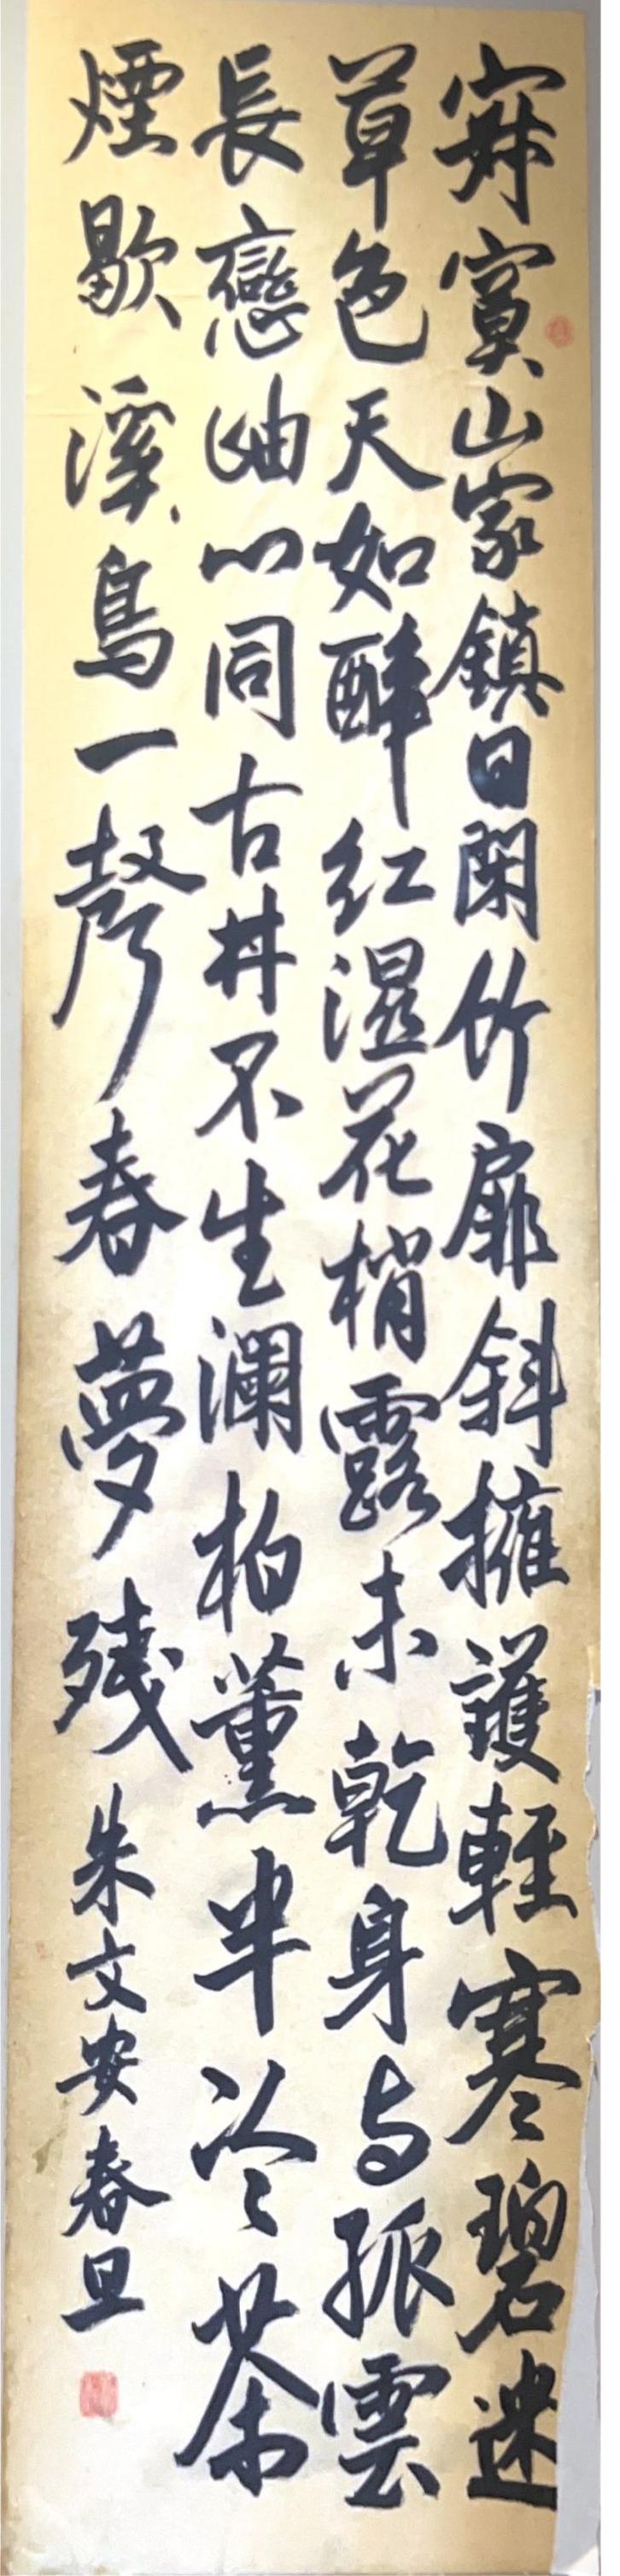 寂寞山家鎮日閑竹扉斜擁護輕寒碧迷
草色天如醉红濕花梢露未乾身与孤雲
長戀岫心同古井不生瀾柏薰半冷茶
煙歇溪鳥一聲春夢残 朱文安春旦